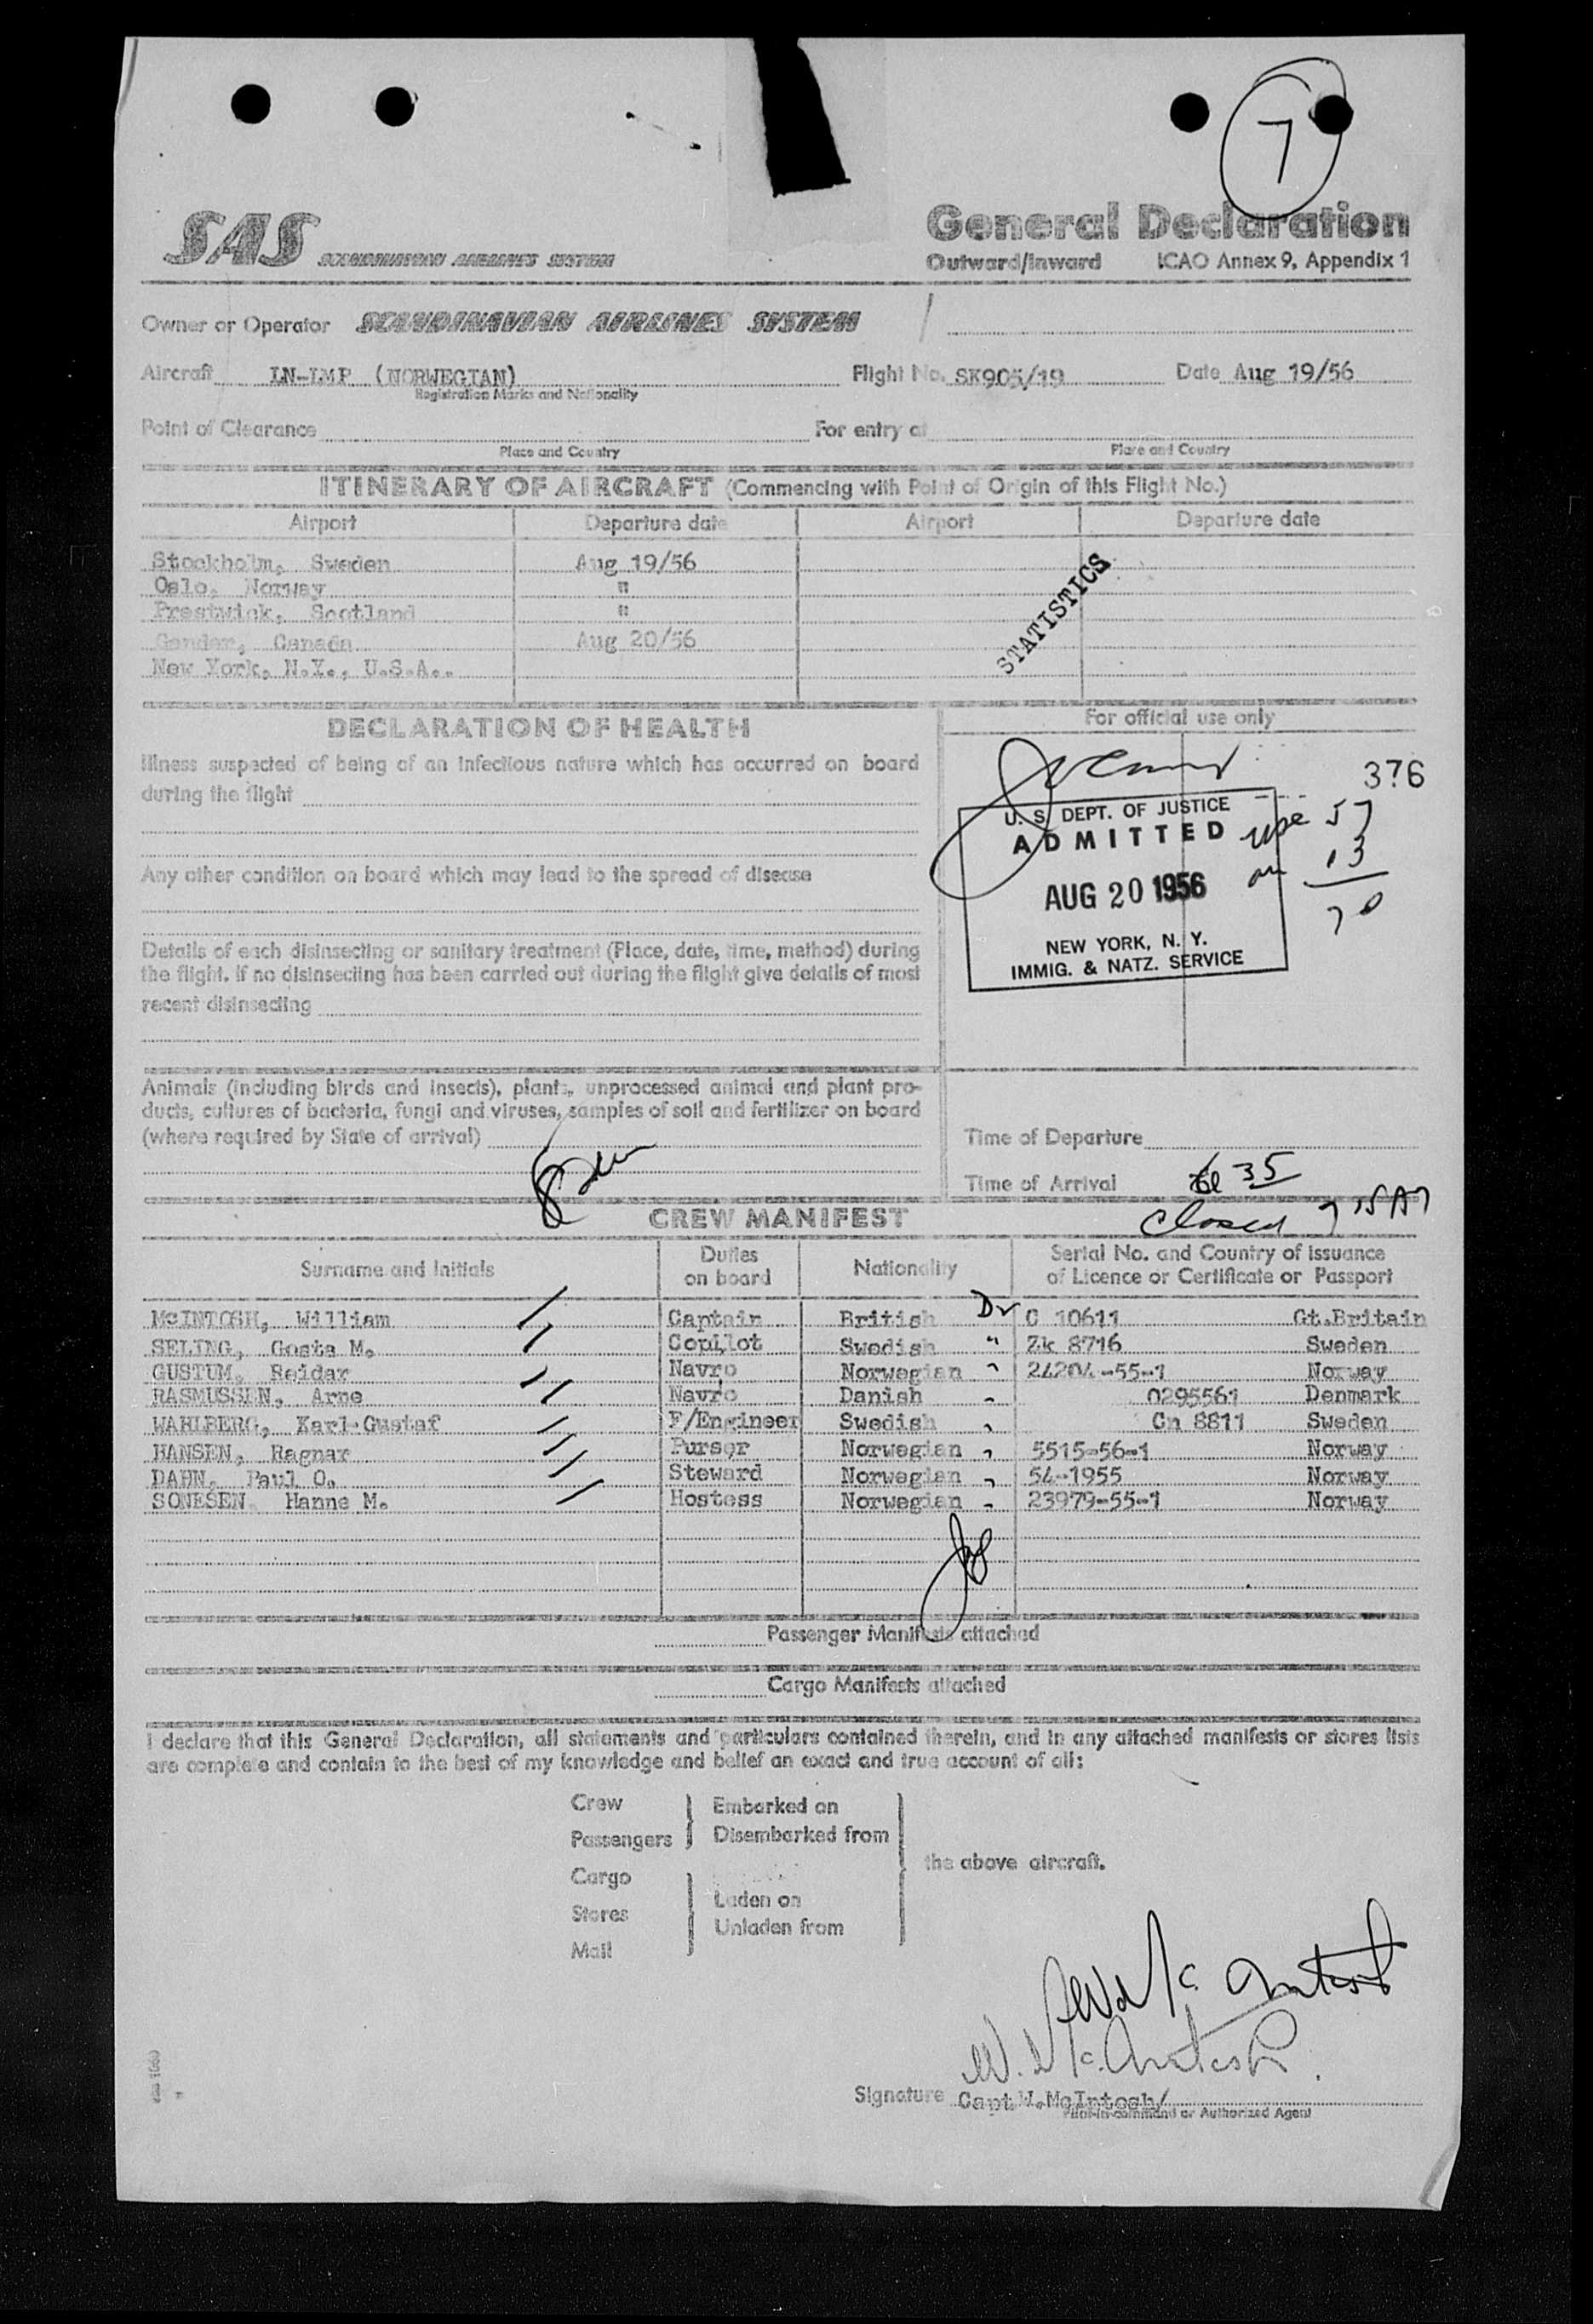 7
SAS SCANDINAVIAN AIRLINES SYSTEM
General Declaration
Outward/Inward ICAO Annex 9, Appendix 1
Owner or Operator SCANDINAVIAN AIRLINES SYSTEM
Aircraft LN-LMP (NORWEGIAN) Flight No. SK905/19 Date Aug 19/56
Registration Marks and Nationality
Point of Clearance For entry at
Place and Country Place and Country
ITINERARY OF AIRCRAFT (Commencing with Point of Origin of this Flight No.)
Airport Departure date Airport Departure date
Stockholm, Sweden Aug 19/56
Oslo, Norway "
Prestwick, Scotland "
Gander, Canada Aug 20/56
New York, N.Y., U.S.A..
STATISTICS
DECLARATION OF HEALTH
For official use only
Illness suspected of being of an infectious nature which has occurred on board
during the flight
Any other condition on board which may lead to the spread of disease
Details of each disinsecting or sanitary treatment (Place, date, time, method) during
the flight. If no disinsecting has been carried out during the flight give details of most
recent disinsecting
376
U. S. DEPT. OF JUSTICE
ADMITTED
AUG 20 1956
NEW YORK, N. Y.
IMMIG. & NATZ. SERVICE
57
13
70
Animals (including birds and insects), plants, unprocessed animal and plant pro-
ducts, cultures of bacteria, fungi and viruses, samples of soil and fertilizer on board
(where required by State of arrival)
Time of Departure
Time of Arrival 35
Closed
CREW MANIFEST
Surname and Initials Duties on board Nationality Serial No. and Country of issuance of Licence or Certificate or Passport
McINTOSH, William Captain British C 10611 Gt.Britain
SELING, Gosta M. Copilot Swedish Zk 8716 Sweden
GUSTUM, Reidar Navro Norwegian 24204-55-1 Norway
RASMUSSEN, Arne Navro Danish 0295561 Denmark
WAHLBERG, Karl-Gustaf F/Engineer Swedish Cn 8811 Sweden
HANSEN, Ragnar Purser Norwegian 5515-56-1 Norway
DAHN, Paul O. Steward Norwegian 54-1955 Norway
SONESEN Hanne M. Hostess Norwegian 23979-55-1 Norway
Passenger Manifests attached
Cargo Manifests attached
I declare that this General Declaration, all statements and particulars contained therein, and in any attached manifests or stores lists
are complete and contain to the best of my knowledge and belief an exact and true account of all:
Crew
Passengers
Embarked on
Disembarked from
Cargo
Stores
Mail
Laden on
Unladen from
the above aircraft.
W. McIntosh
W. McIntosh
Signature Capt.W.McIntosh/
Pilot-in-command or Authorized Agent